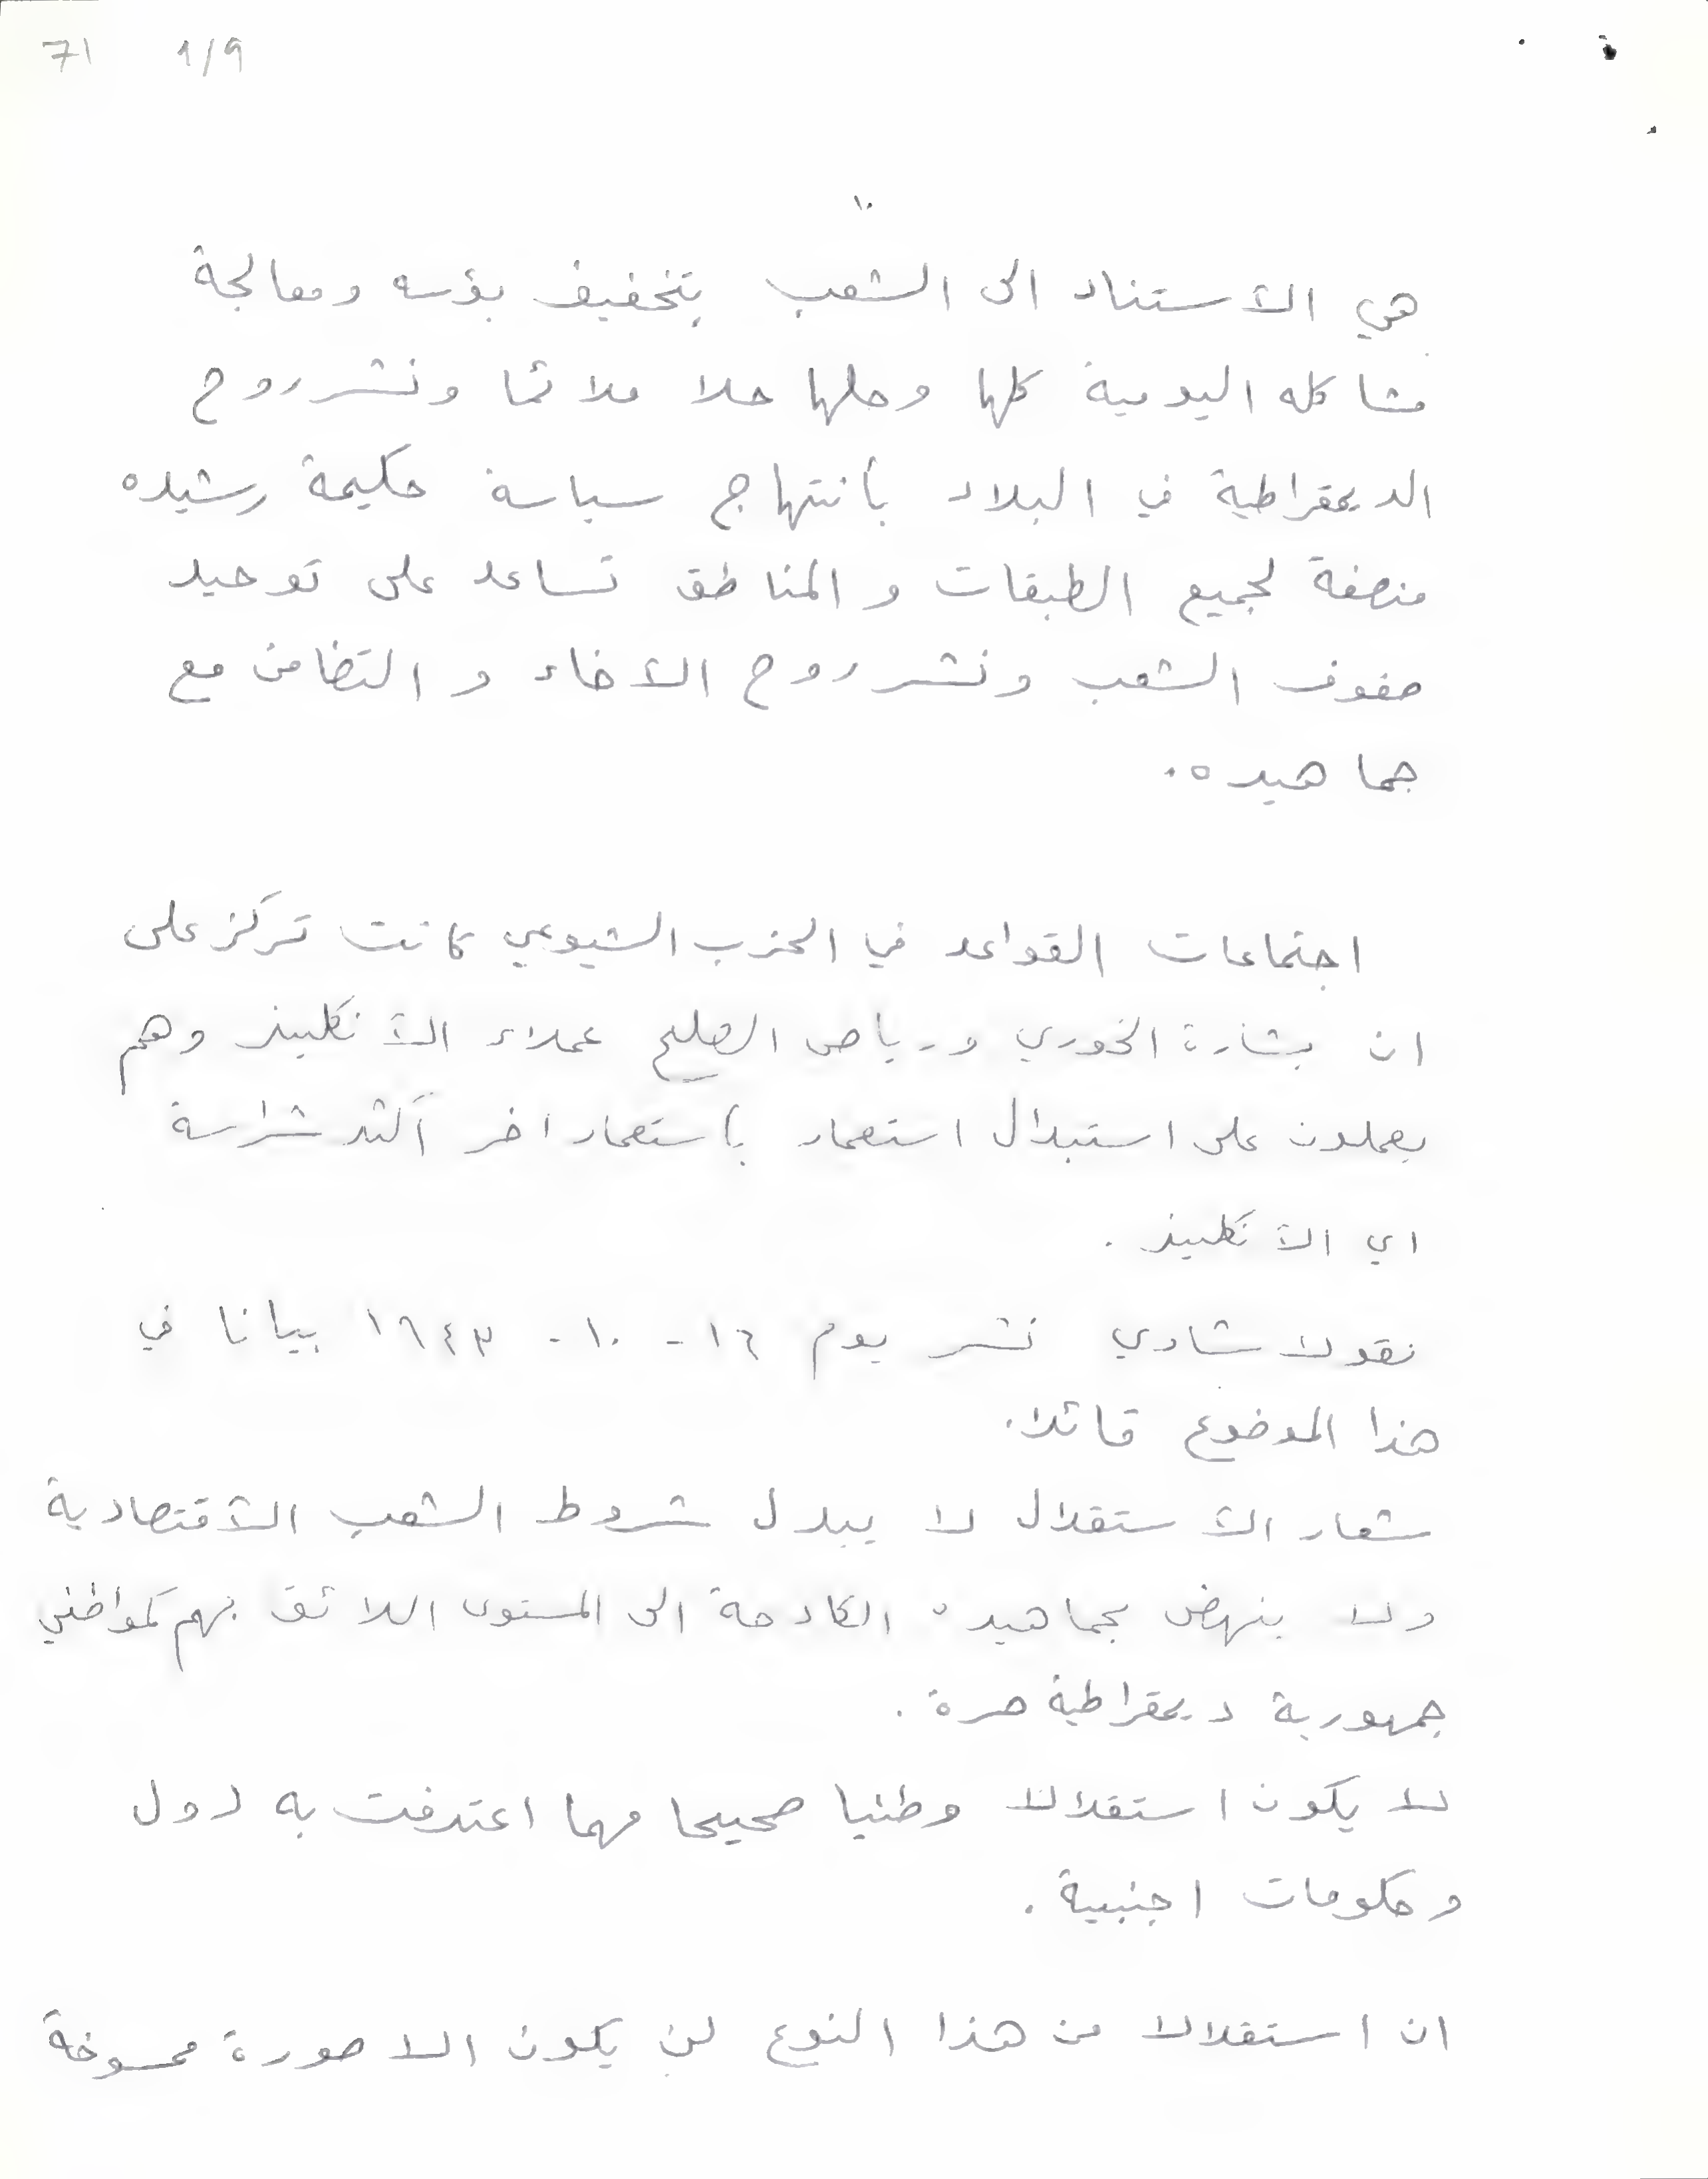 71 1/9
١٠
هي الاستناد الى الشعب بتخفيف بؤسه ومعالجة
مشاكله اليومية كلها وحلها حلا ملائما ونشر روح
الديمقراطية في البلاد بأنتهاج سياسة حكيمة رشيده
منصفة لجميع الطبقات والمناطق تساعد على توحيد
صفوف الشعب ونشر روح الاخاء والتضامن مع
جماهيره.
اجتماعات القواعد في الحزب الشيوعي كانت تركز على
ان بشارة الخوري ورياض الصلح عملاء الانكليز وهم
يعملون على استبدال استعمار باستعمار اخر أكثر شراسة
اي الانكليز.
نقولا شاوي نشر يوم ١٦ - ١٠ - ١٩٤٣ بيانا في
هذا الموضوع قائلا.
شعار الاستقلال لا يبدل شروط الشعب الاقتصادية
ولا ينهض بجماهيره الكادحة الى المستوى اللائق بهم كمواطني
جمهورية ديمقراطية حرة.
لا يكون استقلالا وطنيا صحيحا مهما اعترفت به دول
وحكومات اجنبية.
ان استقلالا من هذا النوع لن يكون الا صورة ممسوخة